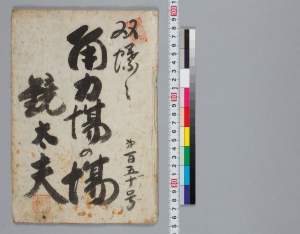 双蝶々
角力場の場
鏡太夫
第百五十号